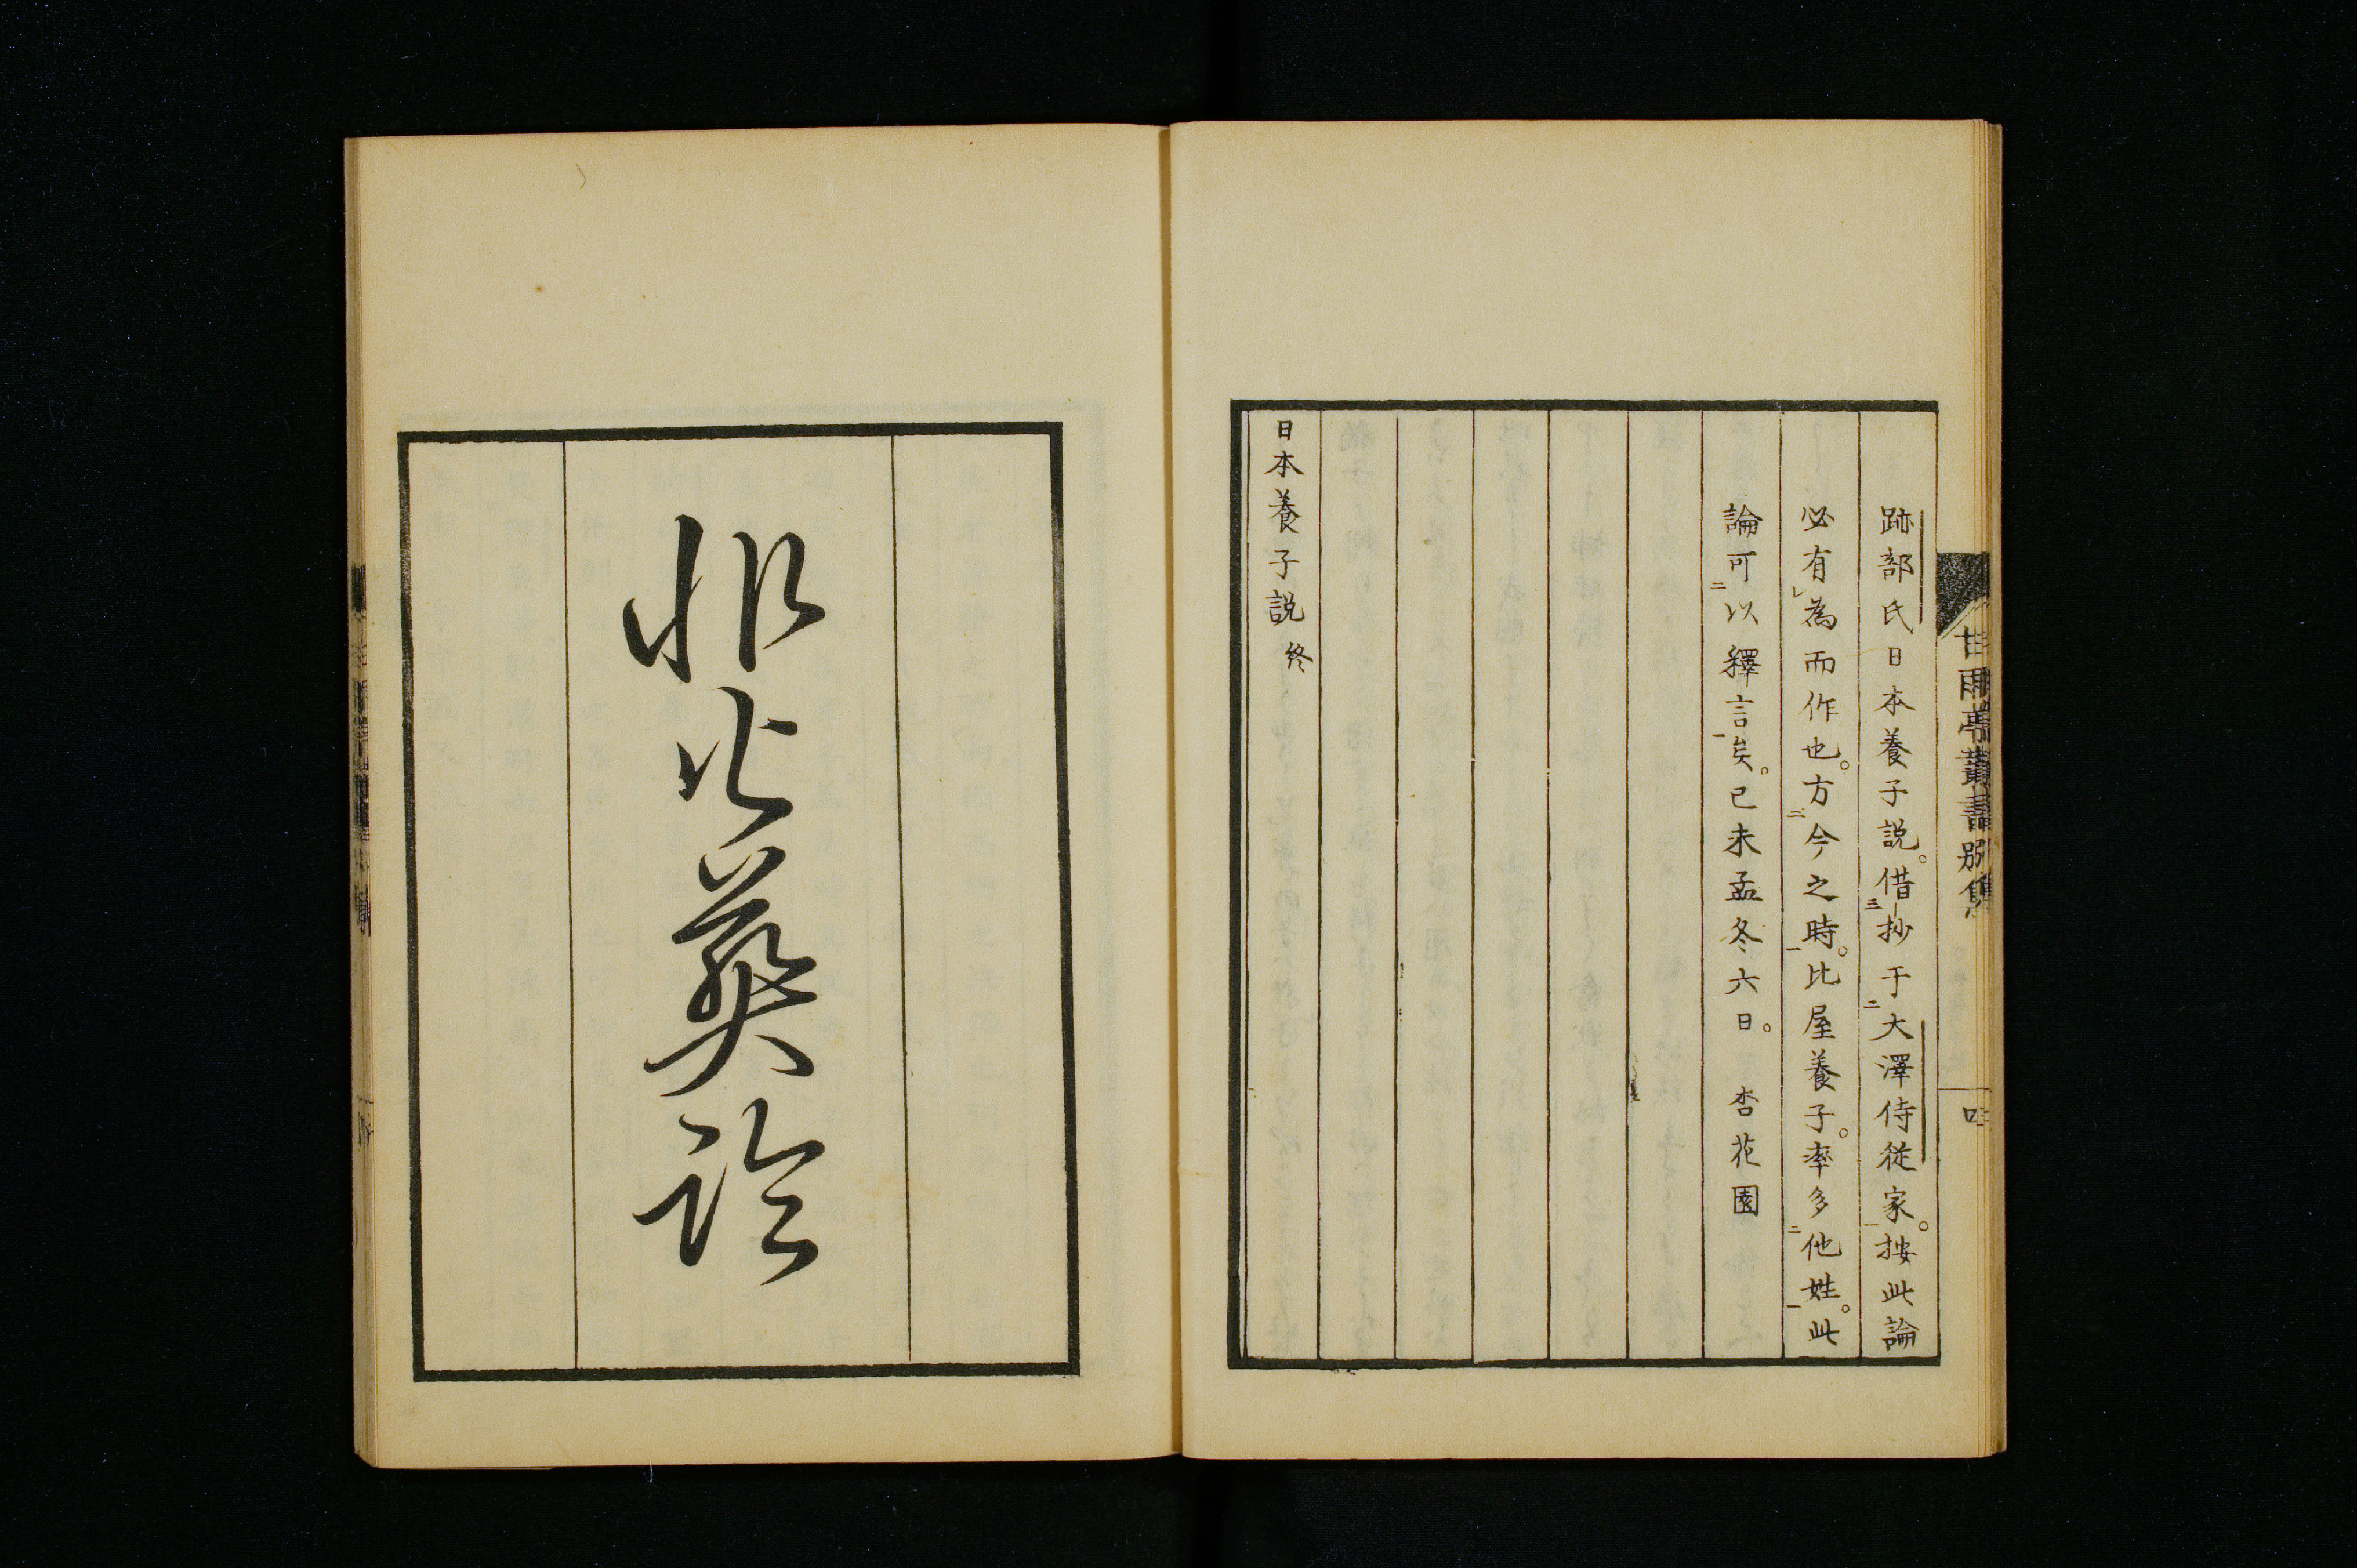 甘雨亭叢書別集
跡部氏日本養子説。借抄于大澤侍從家。按此論
必有為而作也。方今之時。比屋養子。率多他姓。此
論可以釋言矣。己未孟冬六日。 杏花園
日本養子説 終
非火葬論